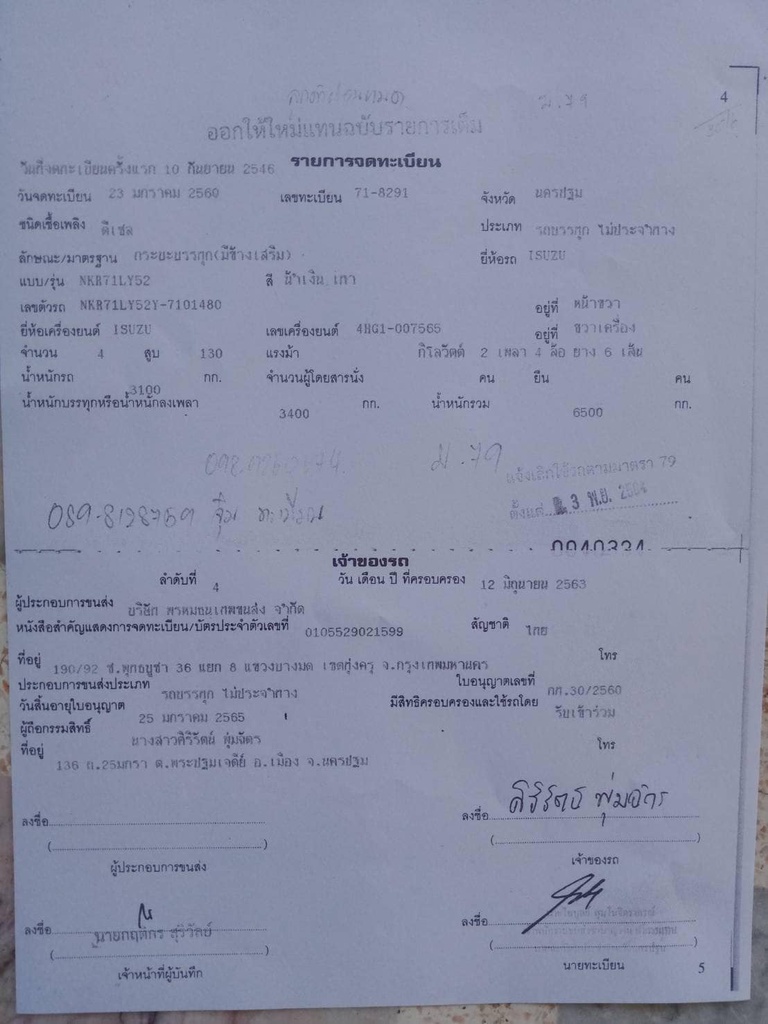 4
ม.79
ออกให้ใหม่แทนฉบับรายการเดิม
รายการจดทะเบียน
วันที่จดทะเบียนครั้งแรก 10 กันยายน 2546
วันจดทะเบียน 23 มกราคม 2560 เลขทะเบียน 71-8291 จังหวัด นครปฐม
ชนิดเชื้อเพลิง ดีเซล ประเภท รถบรรทุก ไม่ประจำทาง
ลักษณะ/มาตรฐาน กระบะบรรทุก(มีข้างเสริม) ยี่ห้อรถ ISUZU
แบบ/รุ่น NKR71LY52 สี น้ำเงิน เทา
เลขตัวรถ NKR71LY52Y-7101480 อยู่ที่ หน้าขวา
ยี่ห้อเครื่องยนต์ ISUZU เลขเครื่องยนต์ 4HG1-007565 อยู่ที่ ขวาเครื่อง
จำนวน 4 สูบ 130 แรงม้า กิโลวัตต์ 2 เพลา 4 ล้อ ยาง 6 เส้น
น้ำหนักรถ 3100 กก. จำนวนผู้โดยสารนั่ง คน ยืน คน
น้ำหนักบรรทุกหรือน้ำหนักลงเพลา 3400 กก. น้ำหนักรวม 6500 กก.
ม.79
แจ้งเลิกใช้รถตามมาตรา 79
ตั้งแต่ 3 พ.ย.
089-8128769
0040334
เจ้าของรถ
ลำดับที่ 4 วัน เดือน ปี ที่ครอบครอง 12 มิถุนายน 2563
ผู้ประกอบการขนส่ง บริษัท พรหมธนเทพขนส่ง จำกัด
หนังสือสำคัญแสดงการจดทะเบียน/บัตรประจำตัวเลขที่ 0105529021599 สัญชาติ ไทย
ที่อยู่ 190/92 ซ.พุทธบูชา 36 แยก 8 แขวงบางมด เขตทุ่งครุ จ.กรุงเทพมหานคร โทร
ประกอบการขนส่งประเภท รถบรรทุก ไม่ประจำทาง ใบอนุญาตเลขที่ กท.30/2560
วันสิ้นอายุใบอนุญาต 25 มกราคม 2565 มีสิทธิครอบครองและใช้รถโดย รับเข้าร่วม
ผู้ถือกรรมสิทธิ์ นางสาวศิริรัตน์ พุ่มฉัตร
ที่อยู่ 136 ถ.25มกรา ต.พระปฐมเจดีย์ อ.เมือง จ.นครปฐม โทร
ศิริรัตน์ พุ่มฉัตร
ลงชื่อ ลงชื่อ
( ) ( )
ผู้ประกอบการขนส่ง เจ้าของรถ
ลงชื่อ ลงชื่อ
นายกฤติกร สุริวัลย์
( ) ( )
เจ้าหน้าที่ผู้บันทึก นายทะเบียน 5